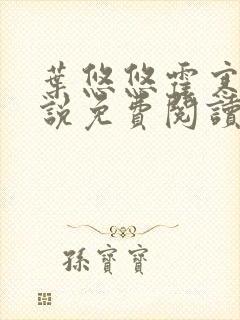 葉悠悠霆寒
說免費閱讀
孫寶寶